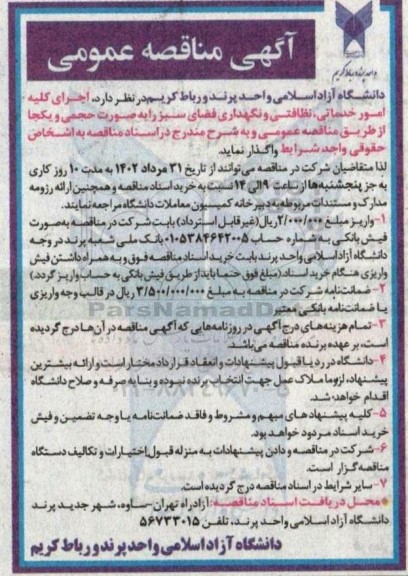 آگهی مناقصه عمومی
واحد پرند و رباط کریم
دانشگاه آزاد اسلامی واحد پرند و رباط کریم در نظر دارد، اجرای کلیه
امور خدماتی، نظافتی و نگهداری فضای سبز را به صورت حجمی و یکجا
از طریق مناقصه عمومی و به شرح مندرج در اسناد مناقصه به اشخاص
حقوقی واجد شرایط واگذار نماید.
لذا متقاضیان شرکت در مناقصه می توانند از تاریخ ۳۱ مرداد ۱۴۰۲ به مدت ۱۰ روز کاری
به جز پنجشنبه ها از ساعت ۹ الی ۱۴ نسبت به خرید اسناد مناقصه و همچنین ارائه رزومه
مدارک و مستندات مربوطه به دبیرخانه کمیسیون معاملات دانشگاه مراجعه نمایند.
۱- واریز مبلغ ۲/۰۰۰/۰۰۰ ریال (غیر قابل استرداد) بابت شرکت در مناقصه به صورت
فیش بانکی به شماره حساب ۰۱۰۵۳۸۴۶۴۲۰۰۵ بانک ملی شعبه پرند در وجه
دانشگاه آزاد اسلامی واحد پرند بابت خرید اسناد مناقصه فوق و به همراه داشتن فیش
واریزی هنگام خرید اسناد. (مبلغ فوق حتما باید از طریق فیش بانکی به حساب واریز گردد.)
۲- ضمانت نامه شرکت در مناقصه به مبلغ ۳/۵۰۰/۰۰۰/۰۰۰ ریال در قالب وجه واریزی
یا ضمانت نامه بانکی معتبر
ParsNamadData
۳- تمام هزینه های درج آگهی در روزنامه هایی که آگهی مناقصه در آن ها درج گردیده
است، بر عهده برنده مناقصه می باشد.
۴- دانشگاه در رد یا قبول پیشنهادات و انعقاد قرارداد مختار است و ارائه بیشترین
پیشنهاد، لزوما ملاک عمل جهت انتخاب برنده نبوده و بنا به صرفه و صلاح دانشگاه
اقدام خواهد شد.
۵- کلیه پیشنهادهای مبهم و مشروط و فاقد ضمانت نامه یا وجه تضمین و فیش
خرید اسناد مردود خواهد بود.
۶- شرکت در مناقصه و دادن پیشنهادات به منزله قبول اختیارات و تکالیف دستگاه
مناقصه گزار است.
۷- سایر شرایط در اسناد مناقصه درج گردیده است.
* محل دریافت اسناد مناقصه: آزادراه تهران-ساوه، شهر جدید پرند
دانشگاه آزاد اسلامی واحد پرند، تلفن ۵۶۷۳۳۰۱۵
دانشگاه آزاد اسلامی واحد پرند و رباط کریم